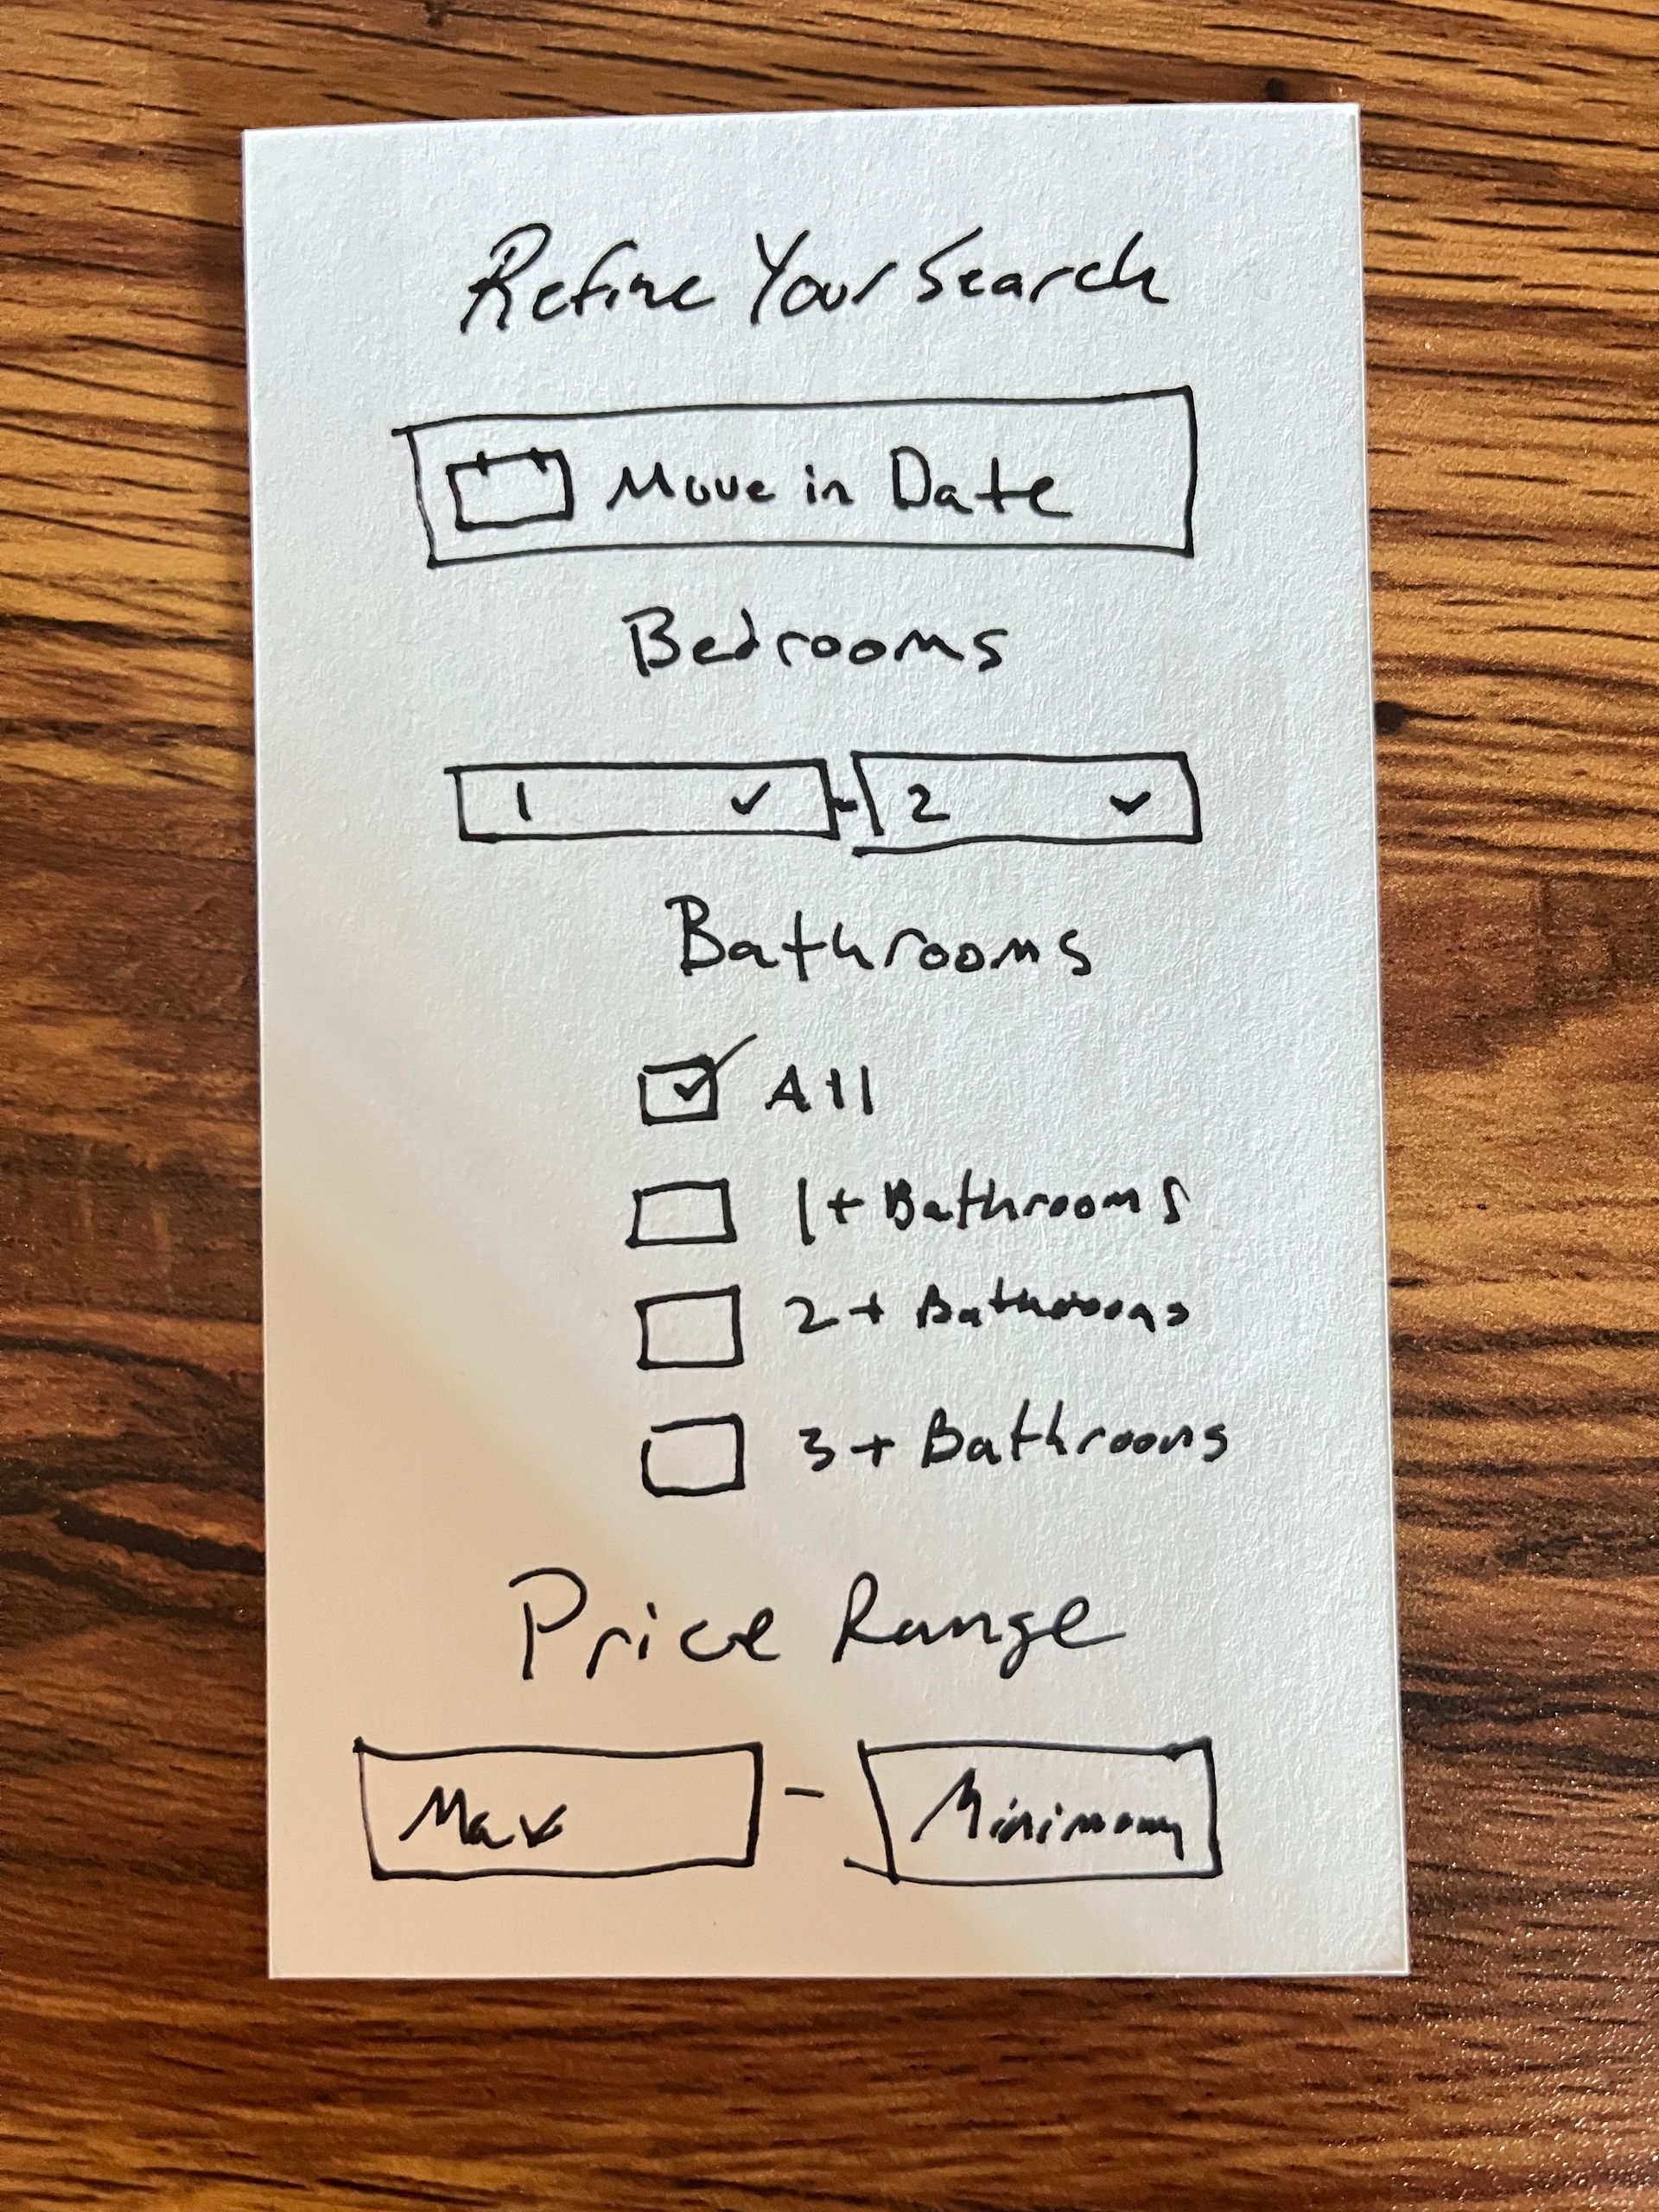 Refine Your Search
Move in Date
Bedrooms
1 - 2
Bathrooms
All
1+ Bathrooms
2+ Bathrooms
3+ Bathrooms
Price Range
Max - Minimum